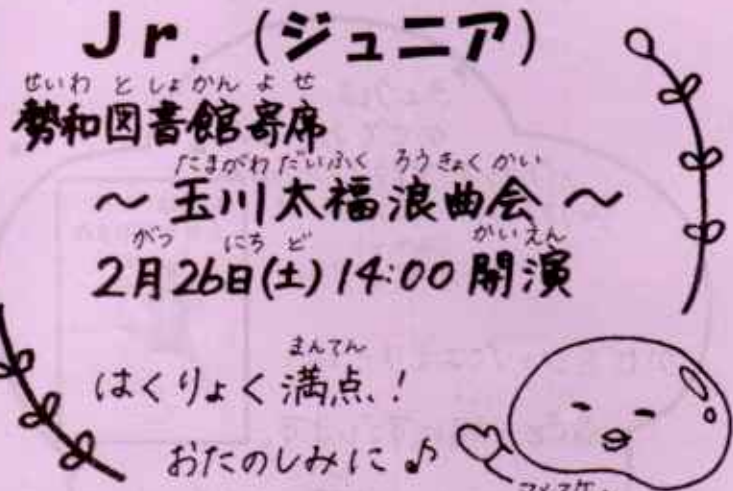 Jr. (ジュニア)
せいわ としょかん よせ
勢和図書館寄席
たまがわ だいふく ろうきょく かい
〜 玉川太福浪曲会 〜
がつ にち ど かいえん
2月26日(土) 14:00 開演
まんてん
はくりょく満点!
おたのしみに♪